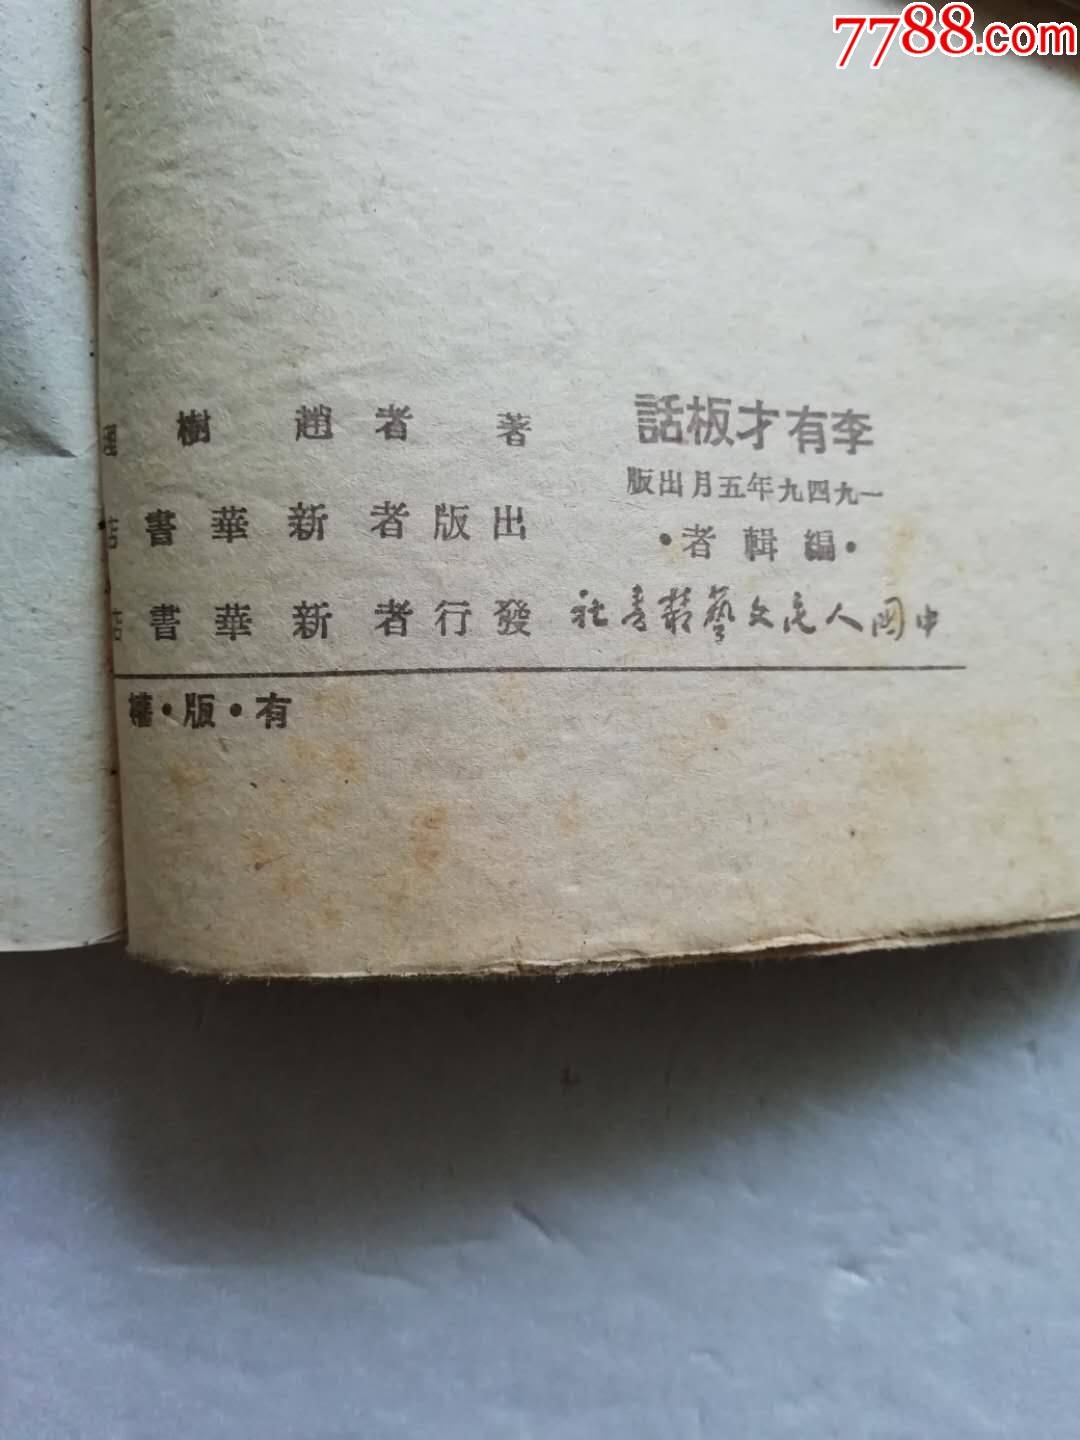 7788.com
李有才板話
一九四九年五月出版
·編輯者·
中國人民文藝叢書社
著者 趙樹理
出版者 新華書店
發行者 新華書店
有·版·權